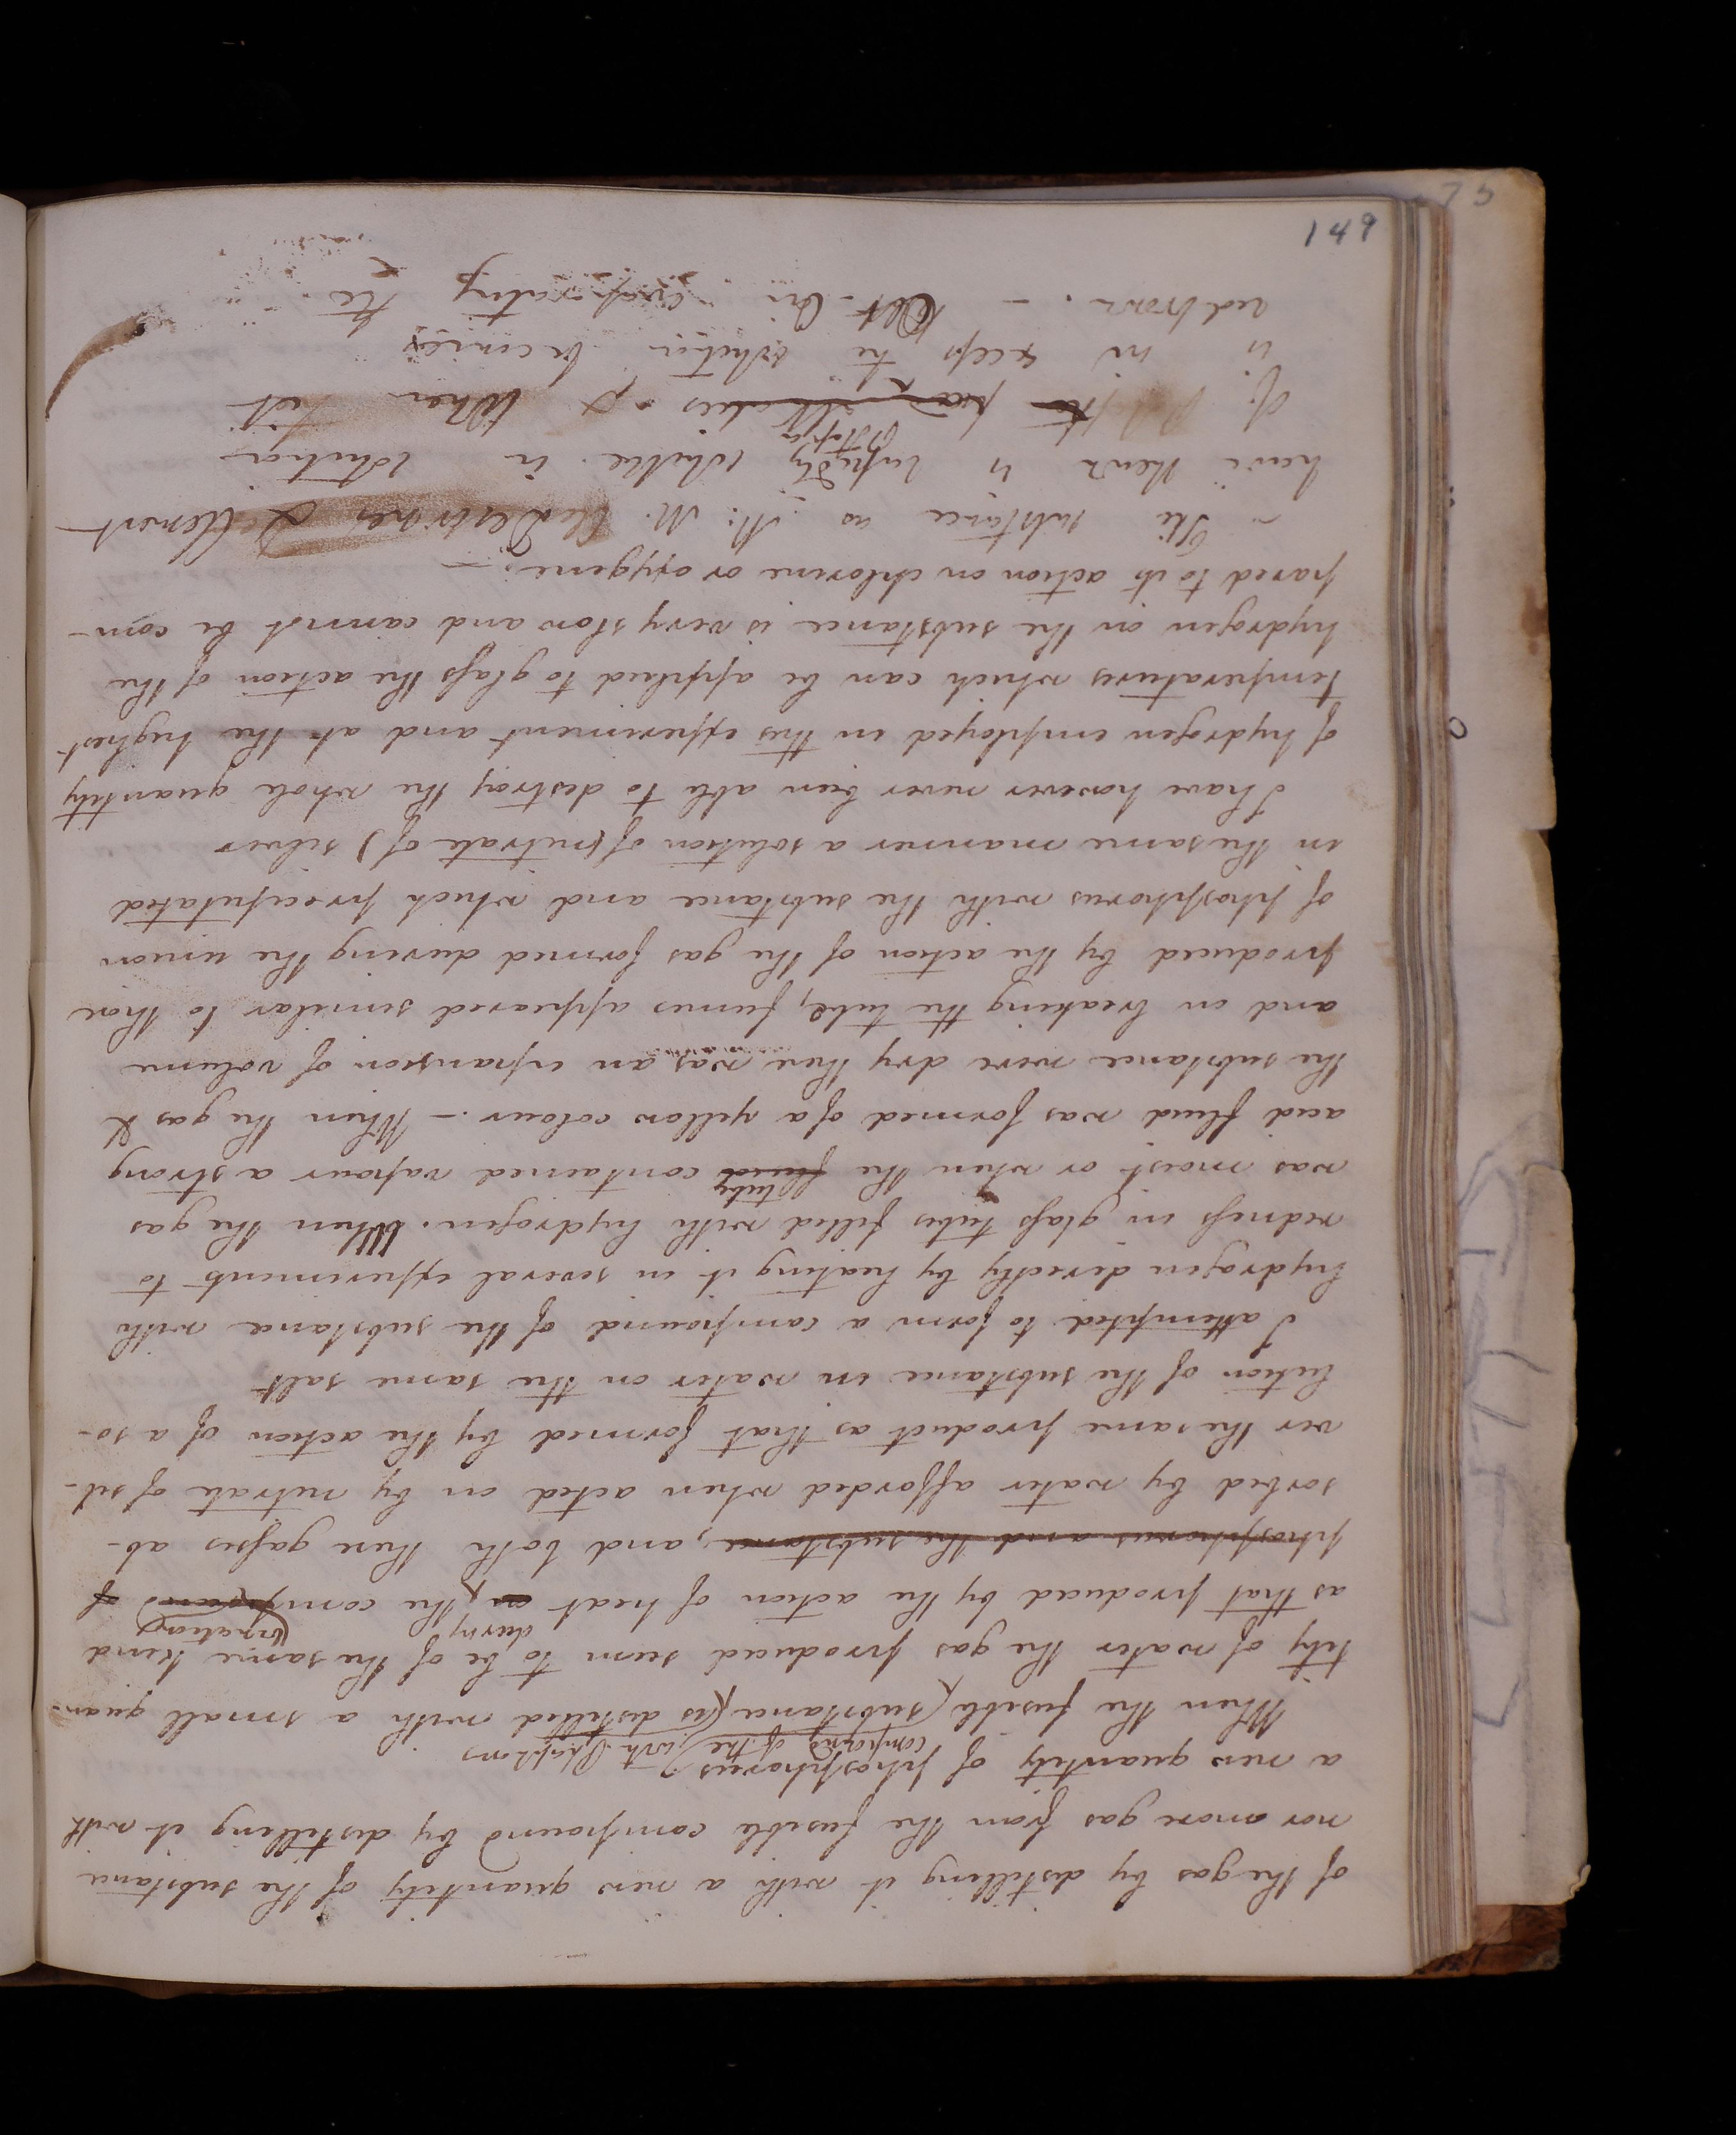 of the gas by distilling it with a new quantity of the substance
nor more gas from the fusible compound by distilling it with
a new quantity of phosphorus
compound of the with Phosphorus
When the fusible substance is distilled with a small quan-
tity of water the gas produced seem to be of the same kind
during
as that produced by the action of heat on the compound of
phosphorus and the substance, and both these gasses ab-
sorbed by water afforded when acted on by nitrate of sil-
ver the same product as that formed by the action of a so-
lution of the substance in water on the same salt
I attempted to form a compound of the substance with
hydrogen directly by heating it in several experiments to
redness in glass tubes filled with hydrogen. When the gas
tube
was moist or when the fluid contained vapour a strong
acid fluid was formed of a yellow colour. - When the gas &
the substance were dry there was an expansion of volume
and on breaking the tube, fumes appeared similar to those
produced by the action of the gas formed during the union
of phosphorus with the substance and which precipitated
in the same manner a solution of (nitrate of) silver
I have however never been able to destroy the whole quantity
of hydrogen employed in this experiment and at the highest
temperatures which can be applied to glass the action of the
hydrogen on the substance is very slow and cannot be com-
pared to its action on chlorine or oxygene. -
The substance as M. M. Desormes & Clement
have shewn is soluble in solution
of When first
is in the solution becomes
red brown. - but on evaporating the
149
75